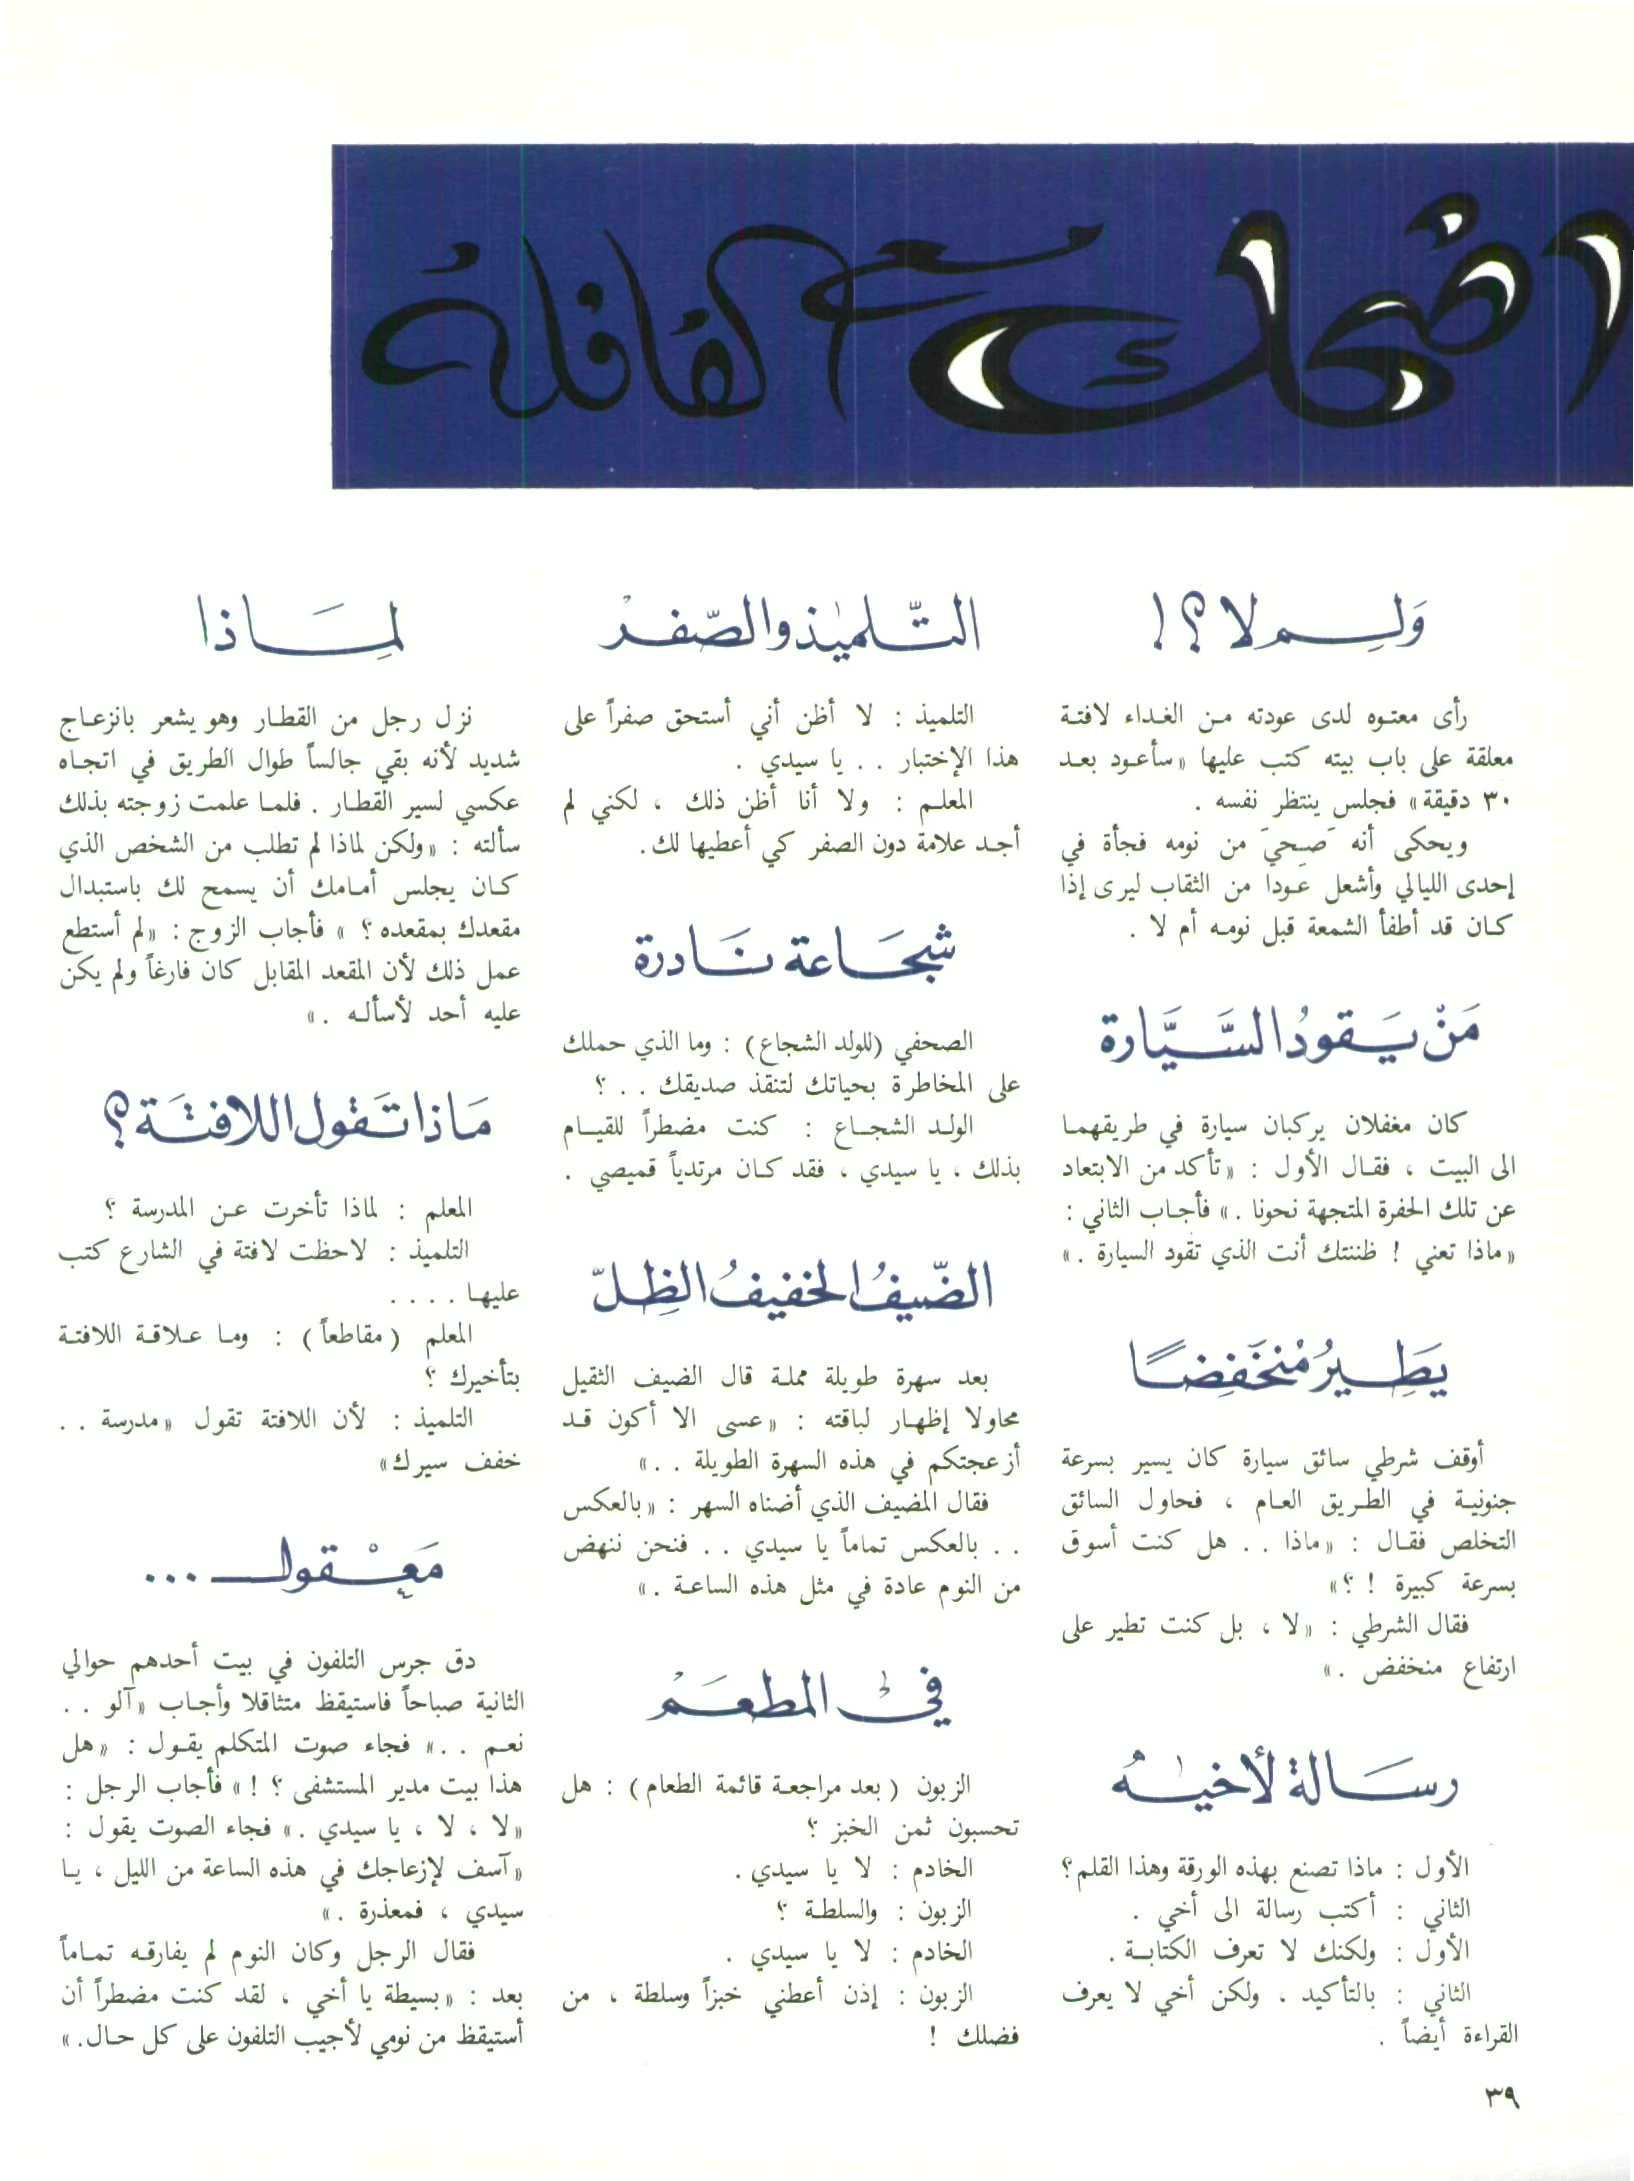 اضحك مع القافلة
وَلِم لا؟!
رأى معتوه لدى عودته من الغداء لافتة
معلقة على باب بيته كتب عليها «سأعود بعد
٣٠ دقيقة» فجلس ينتظر نفسه .
ويحكى أنه صَحِيَ من نومه فجأة في
إحدى الليالي وأشعل عودا من الثقاب ليرى إذا
كان قد أطفأ الشمعة قبل نومه أم لا .
مَنْ يَقودُ السَّيَّارة
كان مغفلان يركبان سيارة في طريقهما
الى البيت ، فقال الأول : «تأكد من الابتعاد
عن تلك الحفرة المتجهة نحونا .» فأجاب الثاني :
«ماذا تعني ! ظننتك أنت الذي تقود السيارة .»
يَطِيرُ مُنخَفِضًا
أوقف شرطي سائق سيارة كان يسير بسرعة
جنونية في الطريق العام ، فحاول السائق
التخلص فقال : «ماذا . . هل كنت أسوق
بسرعة كبيرة ! ؟»
فقال الشرطي : «لا ، بل كنت تطير على
ارتفاع منخفض .»
رسَالة لأخيه
الأول : ماذا تصنع بهذه الورقة وهذا القلم؟
الثاني : أكتب رسالة الى أخي .
الأول : ولكنك لا تعرف الكتابة .
الثاني : بالتأكيد . ولكن أخي لا يعرف
القراءة أيضاً .
التّلميذ والصّفر
التلميذ : لا أظن أني أستحق صفراً على
هذا الإختبار . . يا سيدي .
المعلم : ولا أنا أظن ذلك ، لكني لم
أجد علامة دون الصفر كي أعطيها لك.
شجَاعة نَادرة
الصحفي (للولد الشجاع) : وما الذي حملك
على المخاطرة بحياتك لتنقذ صديقك . . ؟
الولد الشجاع : كنت مضطراً للقيام
بذلك ، يا سيدي ، فقد كان مرتدياً قميصي .
الضّيفُ الخفيفُ الظِلّ
بعد سهرة طويلة مملة قال الضيف الثقيل
محاولا إظهار لباقته : «عسى الا أكون قد
أزعجتكم في هذه السهرة الطويلة . .»
فقال المضيف الذي أضناه السهر : «بالعكس
. . بالعكس تماماً يا سيدي . . فنحن ننهض
من النوم عادة في مثل هذه الساعة .»
في المطعَم
الزبون (بعد مراجعة قائمة الطعام) : هل
تحسبون ثمن الخبز ؟
الخادم : لا يا سيدي .
الزبون : والسلطة ؟
الخادم : لا يا سيدي .
الزبون : إذن أعطني خبزاً وسلطة ، من
فضلك !
لمِاذا
نزل رجل من القطار وهو يشعر بانزعاج
شديد لأنه بقي جالساً طوال الطريق في اتجاه
عكسي لسير القطار . فلما علمت زوجته بذلك
سألته : «ولكن لماذا لم تطلب من الشخص الذي
كان يجلس أمامك أن يسمح لك باستبدال
مقعدك بمقعده ؟ » فأجاب الزوج : «لم أستطع
عمل ذلك لأن المقعد المقابل كان فارغاً ولم يكن
عليه أحد لأسأله .»
مَاذا تَقول اللافتَة؟
المعلم : لماذا تأخرت عن المدرسة ؟
التلميذ : لاحظت لافتة في الشارع كتب
عليها . . . .
المعلم (مقاطعاً) : وما علاقة اللافتة
بتأخيرك ؟
التلميذ : لأن اللافتة تقول «مدرسة . .
خفف سيرك»
مَعْقول ...
دق جرس التلفون في بيت أحدهم حوالي
الثانية صباحاً فاستيقظ متثاقلا وأجاب «آلو . .
نعم . .» فجاء صوت المتكلم يقول : «هل
هذا بيت مدير المستشفى ؟ !» فأجاب الرجل :
«لا ، لا ، يا سيدي .» فجاء الصوت يقول :
«آسف لإزعاجك في هذه الساعة من الليل ، يا
سيدي ، فمعذرة .»
فقال الرجل وكان النوم لم يفارقه تماماً
بعد : «بسيطة يا أخي ، لقد كنت مضطراً أن
أستيقظ من نومي لأجيب التلفون على كل حال.»
٣٩